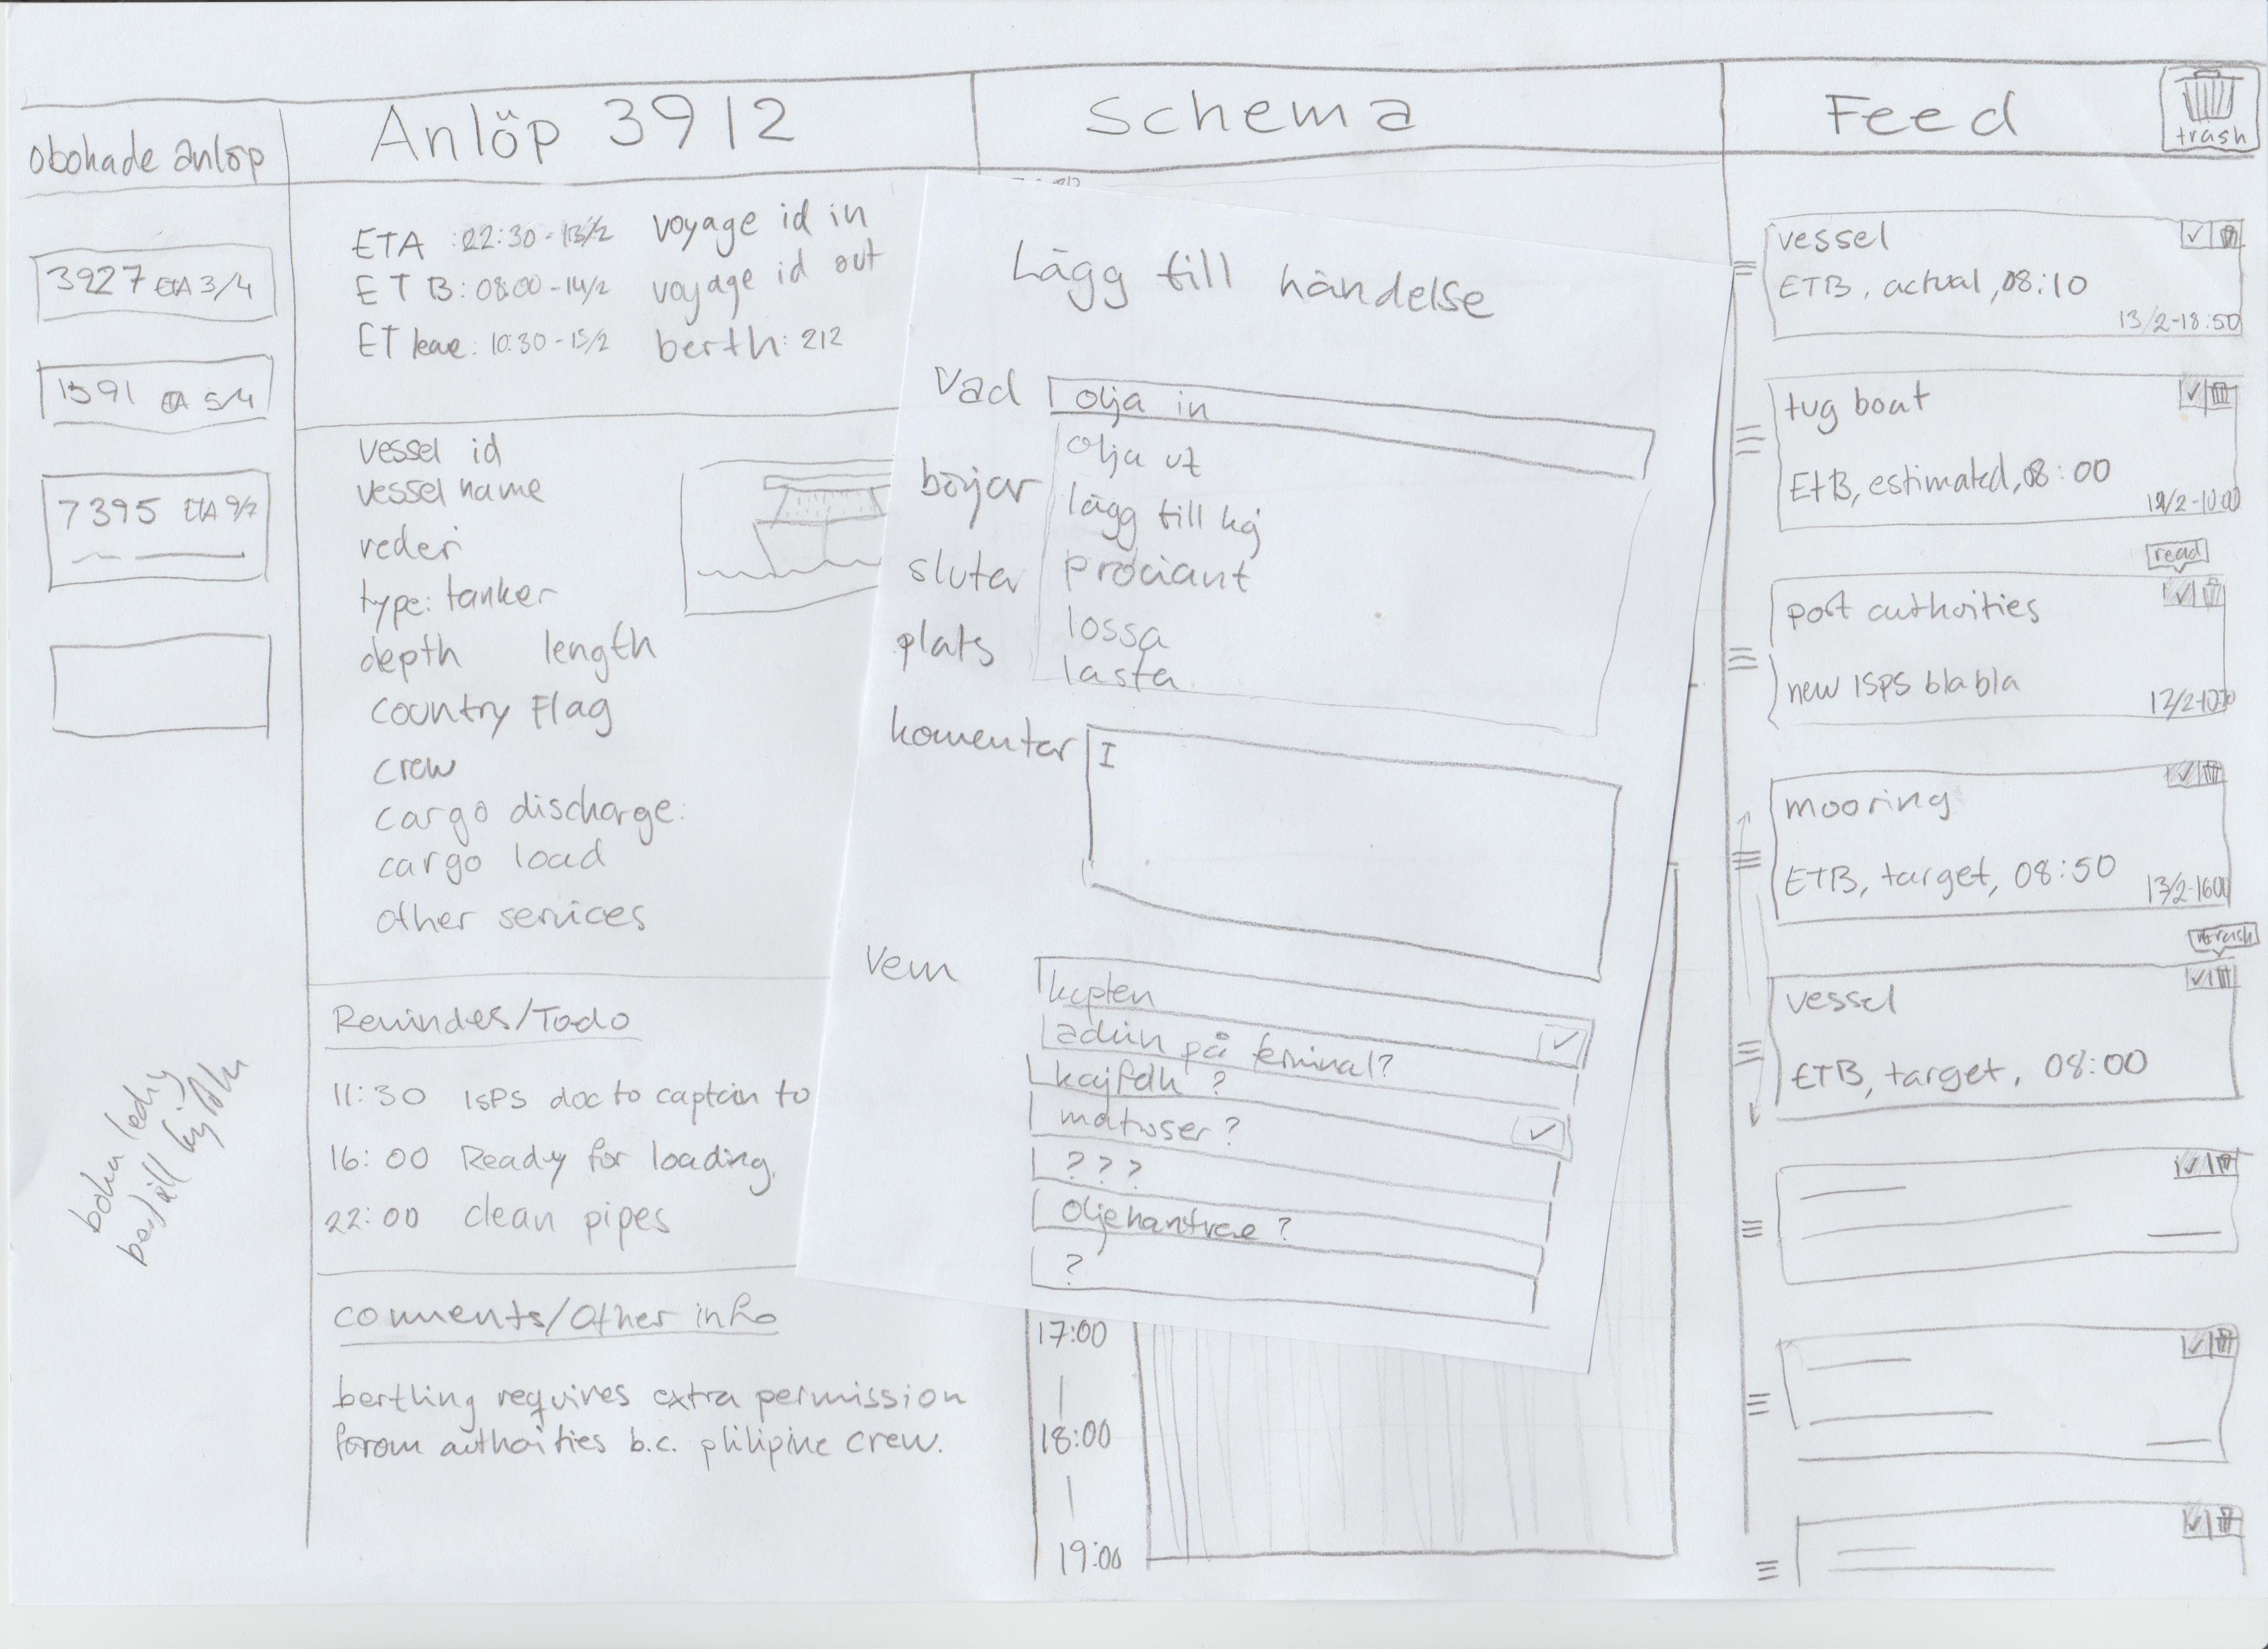 obokade anlöp
3927 ETA 3/4
1591 ETA 5/4
7395 ETA 9/2
boka
Anlöp 3912
ETA :22:30-13/2 voyage id in
ETB:08:00-14/2 voyage id out
ET leave: 10:30-15/2 berth: 212
vessel id
vessel name
reder
type: tanker
depth length
country Flag
crew
cargo discharge:
cargo load
other services
Remindes/Todo
11:30 ISPS doc to captain to
16:00 Ready for loading.
22:00 clean pipes
comments/Other info
bertling requires extra permission
forom authoities b.c. philipine crew.
Schema
Lägg till händelse
Vad olja in
olja ut
lägg till kaj
proviant
lossa
lasta
börjar
slutar
plats
komentar I
Vem
kapten
admin på terminal?
kajfdh ?
matroser?
???
oljehantrare ?
?
17:00
18:00
19:00
Feed
trash
vessel
ETB, actual, 08:10
13/2-18:50
tug boat
EtB, estimated, 08:00
12/2-10:00
read
port authorities
new ISPS blabla
mooring
ETB, target, 08:50
13/2-1600
trash
vessel
ETB, target, 08:00